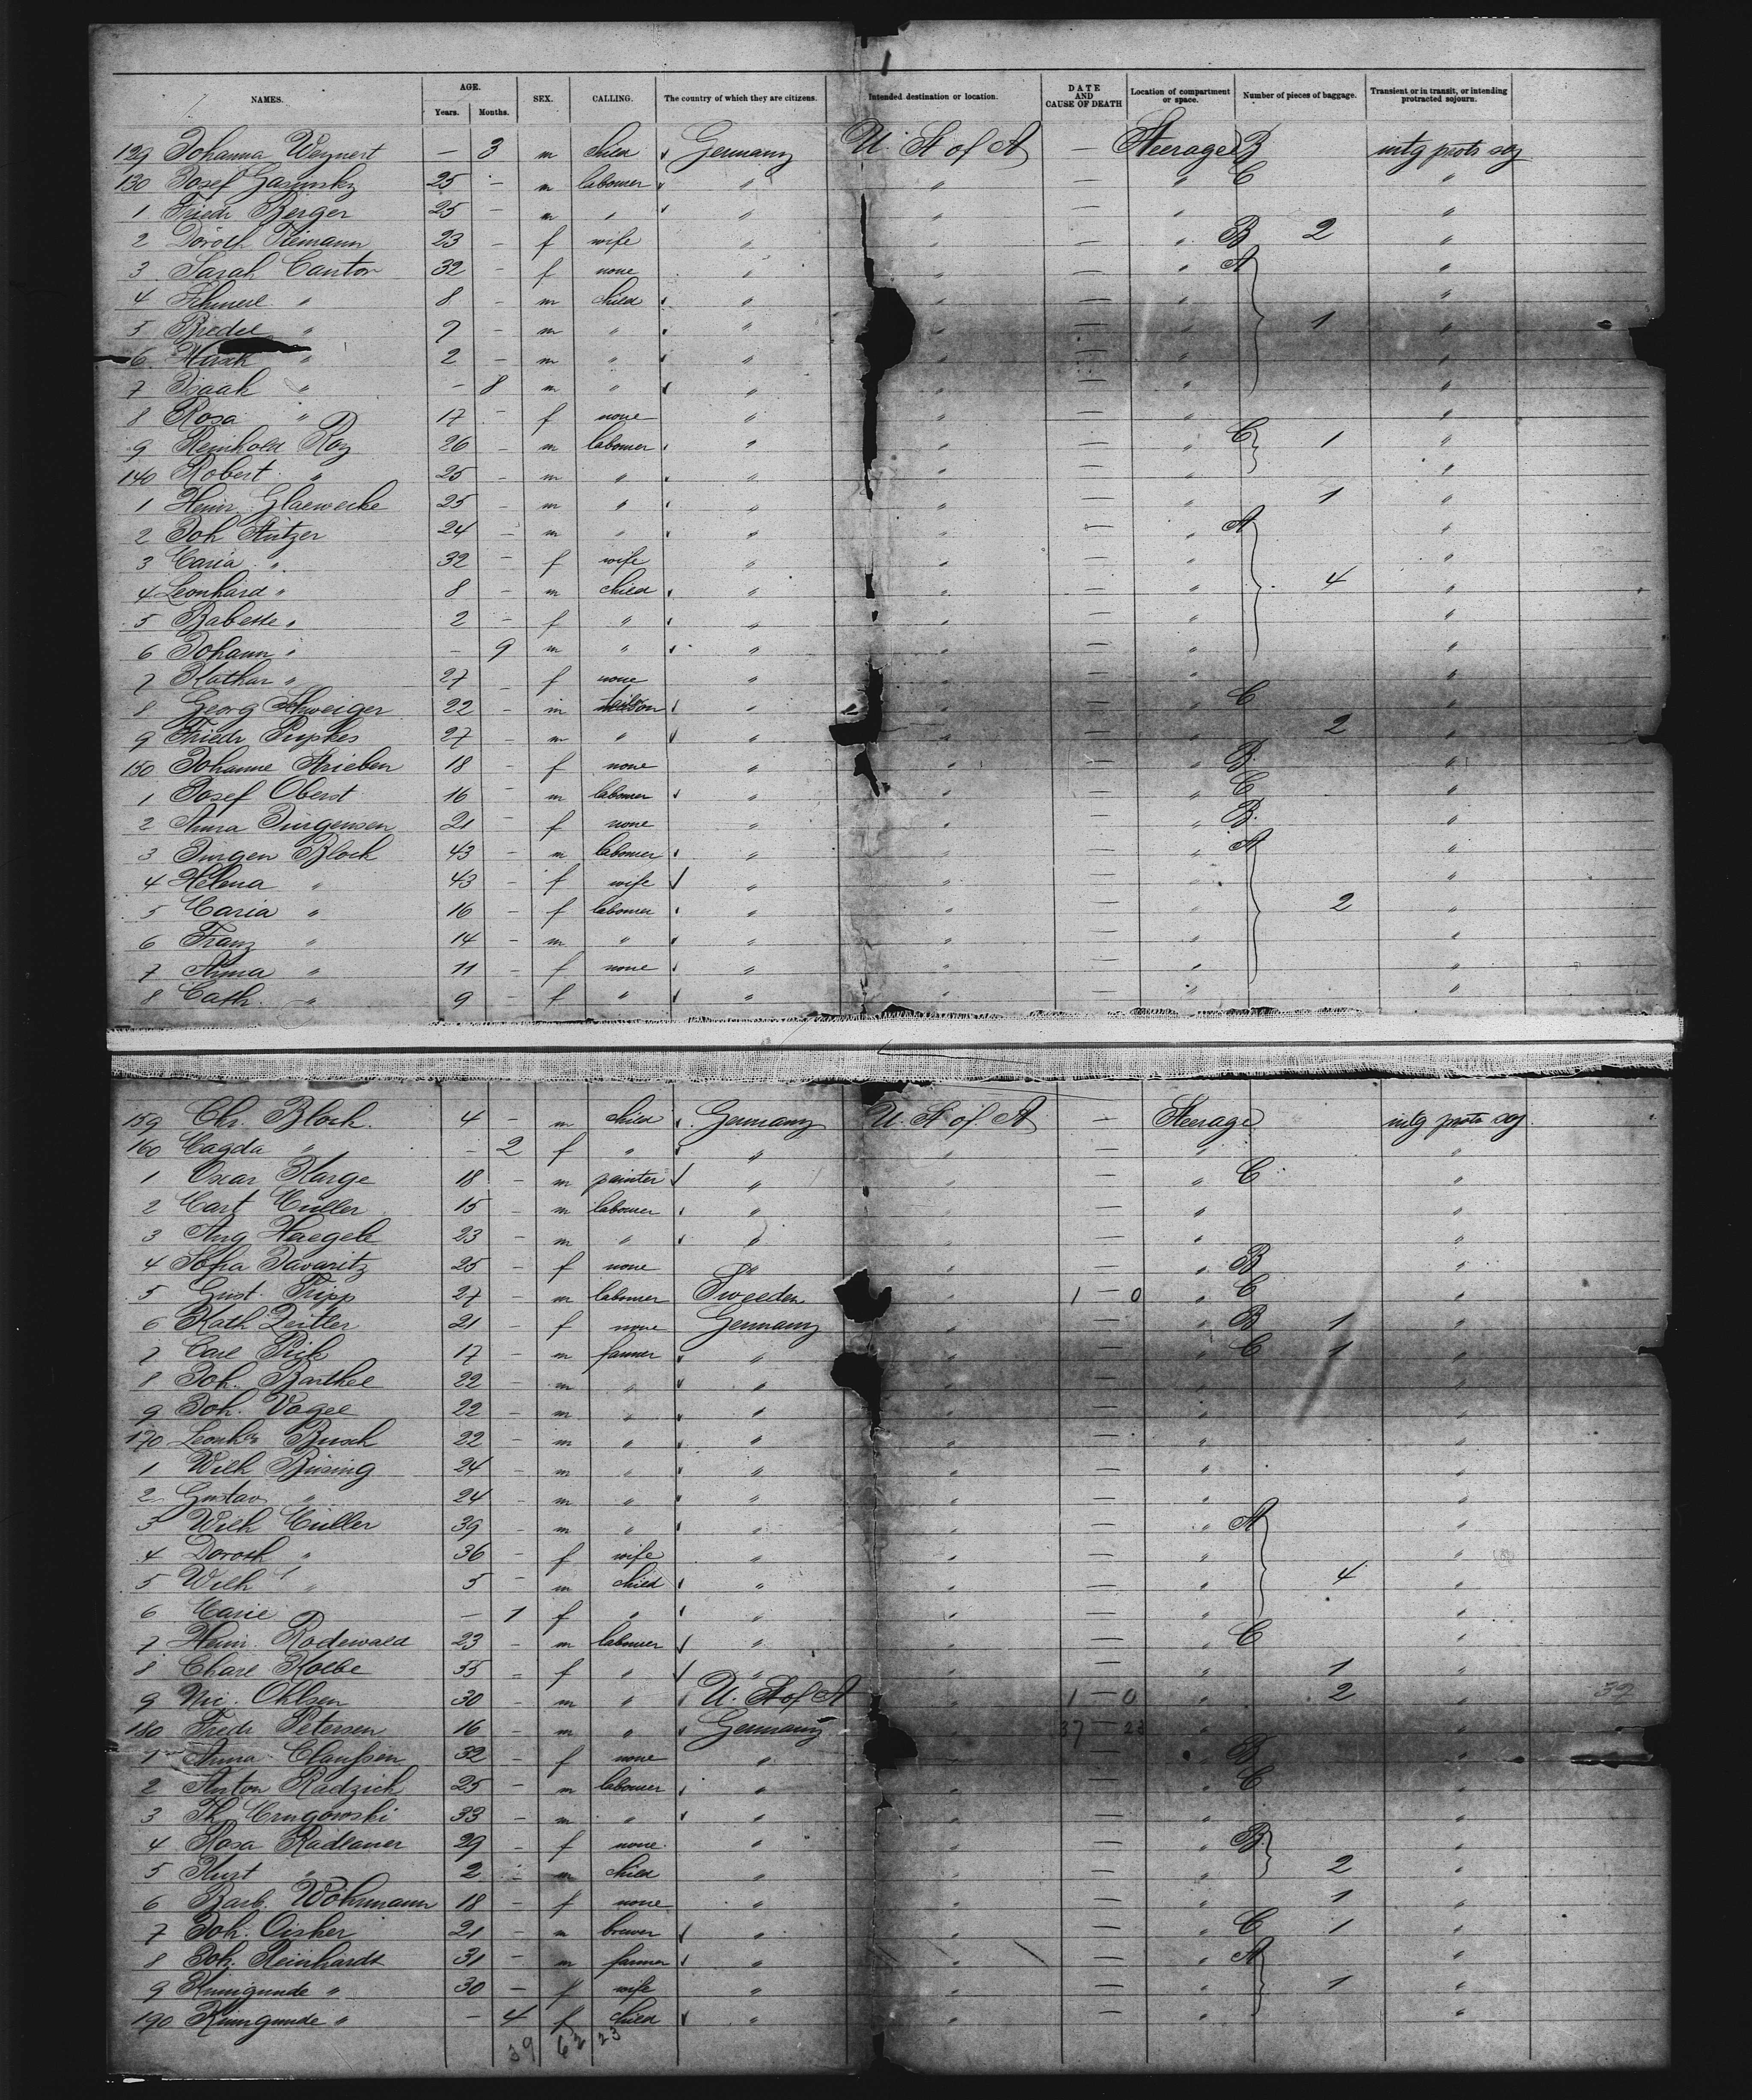 NAMES. AGE. Years. Months. SEX. CALLING. The country of which they are citizens. Intended destination or location. DATE AND CAUSE OF DEATH Location of compartment or space. Number of pieces of baggage. Transient or in transit, or intending protracted sojourn.
129 Johanna Weynert — 3 m child Germany U. St of A — Steerage B intg protr soj
130 Josef Gasinsky 25 - m labourer " " — " C "
1 Friedr Berger 25 - m " " " — " "
2 Doroth Tiemann 23 - f wife " " — " B 2 "
3 Sarah Cantor 32 - f none " " — " A "
4 Schmerl " 8 - m child " " — " "
5 Briedel " 7 - m " " " — " 1 "
6 Hirsch " 2 - m " " — " "
7 Isaak " - 8 m " " " — " "
8 Rosa " 17 - f none " " — " "
9 Reinhold Roy 26 - m labourer " " — " C 1 "
140 Robert " 25 - m " " " — " "
1 Heinr. Glaewecke 25 - m " " " — " 1 "
2 Joh Stutzer 24 - m " " " — " A "
3 Caria " 32 - f wife " " — " "
4 Leonhard " 8 - m child " " — " 4 "
5 Babette " 2 - f " " " — " "
6 Johann " - 9 m " " " — " "
7 Kathar " 27 - f none " " — " "
8 Georg Schweiger 22 - m " " — " C "
9 Friedr Pupkes 27 - m " " " — " 2 "
150 Johanne Strieben 18 - f none " " — " B "
1 Josef Oberst 16 - m labourer " " — " C "
2 Anna Jurgensen 21 - f none " " — " B "
3 Jurgen Block 43 - m labourer " " — " A "
4 Helena " 43 - f wife " " — " "
5 Caria " 16 - f labourer " " — " 2 "
6 Franz " 14 - m " " " — " "
7 Anna " 11 - f none " " — " "
8 Cath. " 9 - f " " " — " "
159 Chr. Block. 4 - m child Germany U. St of A — Steerage intg protr soj
160 Cagda " - 2 f " " " — " "
1 Oscar Karge 18 - m painter " " — " C "
2 Carl Culler 15 - m labourer " " — " "
3 Aug Haegele 23 - m " " " — " "
4 Sofia Davaritz 25 - f none " " — " B "
5 Gust. Tripp 27 - m labourer Sweeden " 1 — 0 " C "
6 Kath Zeitler 21 - f none Germany " — " B 1 "
7 Carl Pick 17 - m farmer " " — " C 1 "
8 Joh. Barthel 22 - m " " " — " "
9 Joh. Vogel 22 - m " " " — " "
170 Leonhr Busch 22 - m " " " — " "
1 Wilh Büsing 24 - m " " " — " "
2 Gustav " 24 - m " " " — " "
3 Wilh Cüller 39 - m " " " — " A "
4 Doroth " 36 - f wife " " — " "
5 Wilh " 5 - m child " " — " 4 "
6 Carie — 1 f " " " — " "
7 Heinr. Rodewald 23 - m labourer " " — " C "
8 Charl Kolbe 35 - f " " " — " 1 "
9 Nic. Ohlsen 30 - m " U. St of A " 1 — 0 " 2 " 39
180 Friedr Petersen 16 - m " Germany " 37 — 23 " "
1 Anna Claufsen 32 - f none " " — " B "
2 Anton Radzich 25 - m labourer " " — " C "
3 Th. Crugowski 33 - m " " " — " "
4 Rosa Radlauer 29 - f none " " — " B "
5 Kurt " 2 - m child " " — " 2 "
6 Barb. Wohrmann 18 - f none " " — " 1 "
7 Joh. Oisher 21 - m brewer " " — " C 1 "
8 Joh. Reinhardt 31 - m farmer " " — " A "
9 Kunigunde " 30 - f wife " " — " 1 "
190 Kunigunde " — 4 f child " " — " "
39 62 23